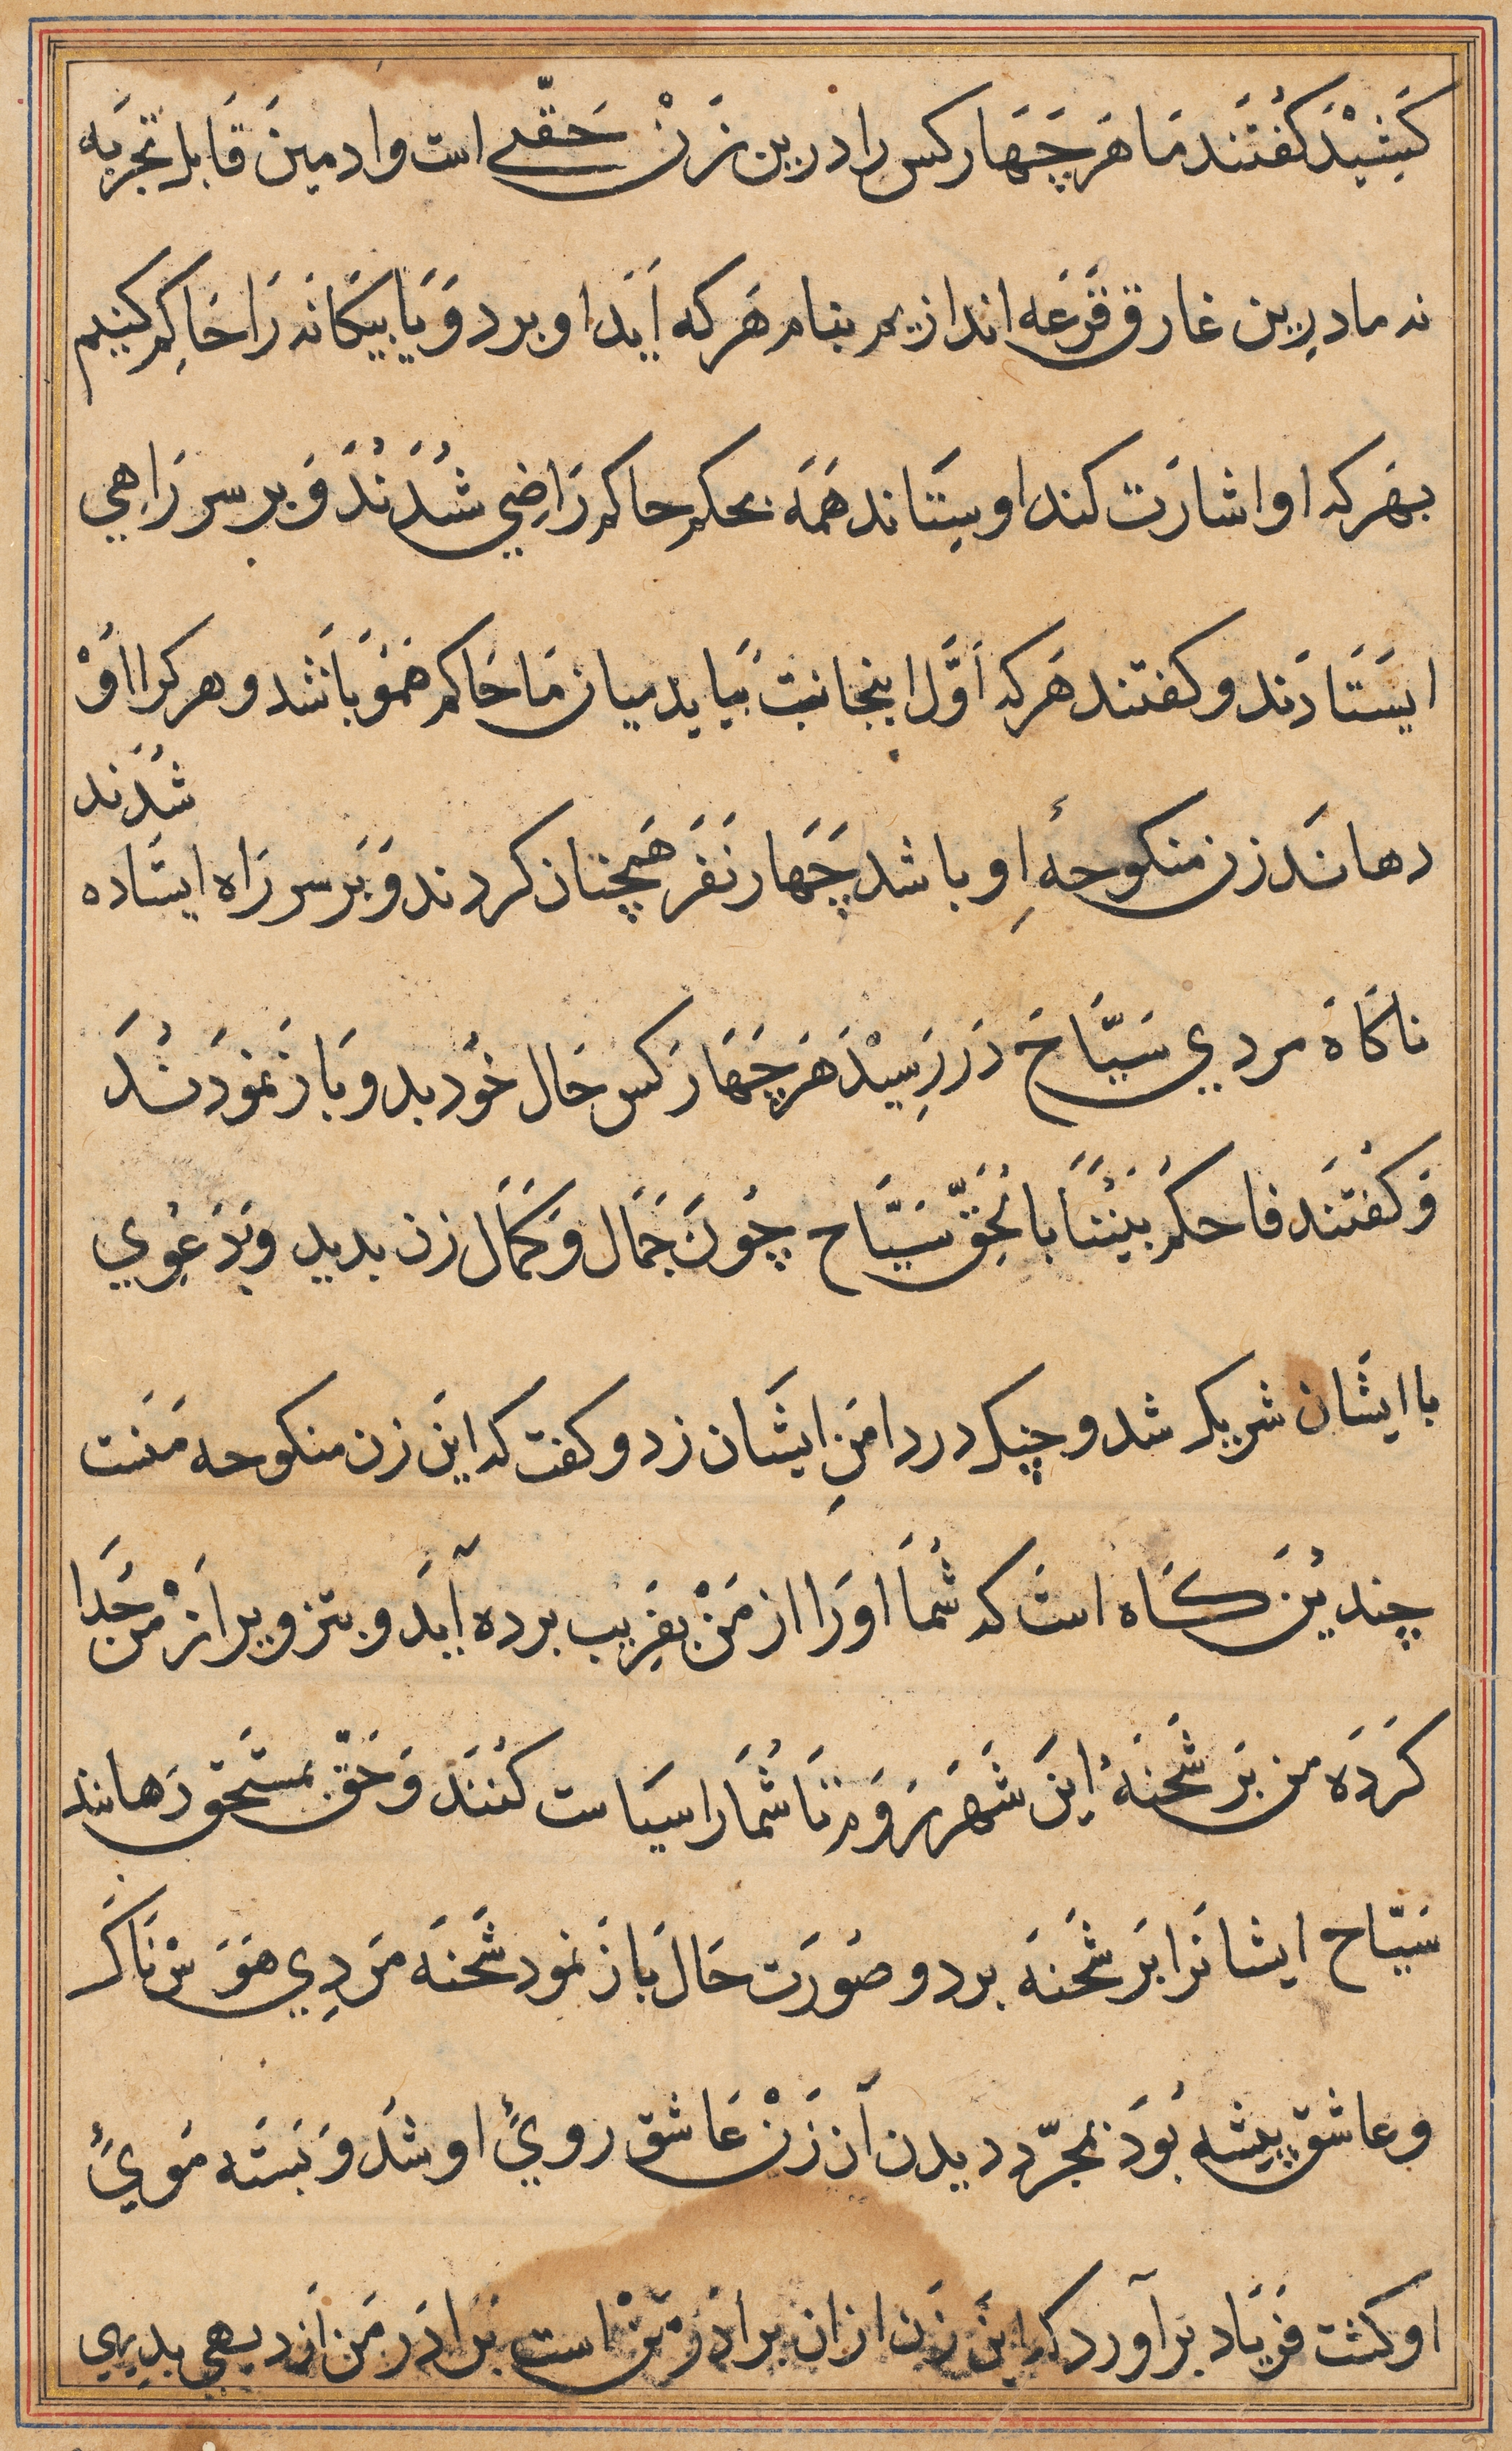 کَشِیْدَ کفتَند مَا هَر چَهَار کس را درین زَنْ حَقّی است وادمین قَابل تجربَه
نه ما درین غارق قُرعَه اندازیم بنام هَر که اَیَد او برد وَ یَا بیکَانه رَا حَاکِم کنیم
بهَر که او اشارَت کند او سِتَاند هَمَه بحکم حاکم رَاضِی شُدَنْدَ وَ بر سر رَاهِی
ایسَتَادَند و کفتند هَر که اَوَّل اینجانبْ بَیَاید میان مَا حَاکم هَمُو بَاشَد و هر کرا اوْ
شُدَند
دهانَد زن منکوحهٔ اِو باشد چَهَار نَفَر هَمچنان کردند وَ بَر سر رَاه ایستَاده
ناکَاهَ مردی سَیَّاحَ دَر رَسِیْدَ هَر چَهَار کس حَال خُود بدو بَاز نمُودَنْدَ
وَ کفتَند فاحکُم بَینَنَا بالحَقِّ سَیَّاح چُونَ جَمَال وَ کَمَال زن بدید و بَدَعْوِی
با ایشَان شریک شد و چنک در دامَنِ ایشَان زد و کفت که اینَ زن منکوحه مَنست
چندیُن کَاه است که شُمَا اورَا از مَنْ بفَرِیب برده آیَد و بتزویر اَزْ من جُدَا
کَردَه من بَر شَحنَهٔ اینَ شَهَر رَوَم تَا شُمَا را سیَاست کُنَند وَ حَقّ بمستَحق رَهانند
سَیّاح ایشانَرا بَر شَحنَه برد و صُورَت حَال بَازَ نمود شَحنَه مَردِی هَوَسْنَاکَ
و عاشق پیشه بُودَ بمجَرّد دیدن آن زَنْ عَاشق رویَٔ او شُد وَ بَستَه مُویَٔ
او کشت فَریَاد بَر آورد که اینَ زَن از ان برادَر مَنْ است بَرادَر مَن اَز دیهی بدیهی